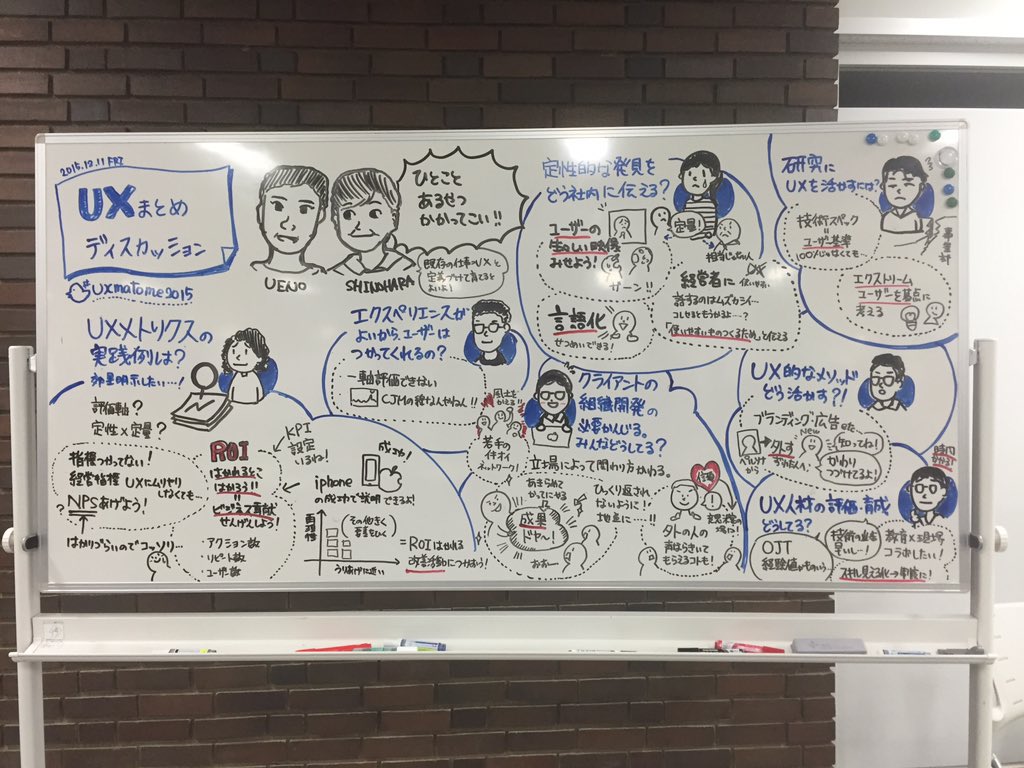 2015.12.11 FRI
UXまとめ
ディスカッション
Uxmatome2015
UENO
SHINOHARA
ひとこと
あるぜっ
かかってこい!!
既存の仕事のUXと
定義づけて育てると
よいよ!
UXメトリクスの
実践例は?
効果明示したい…!
評価軸?
定性×定量?
指標つかってない!
経営指標
UXにムリヤリ
しなくても…
NPSあげよう!
?
はかりづらいのでコッソリ…
ROI
はかれるとこ
はかろう!!
ビジネス貢献
せんげんしよう!
アクション数
リピート数
ユーザー数
KPI
設定
いるね!
成功!
iphone
の成功で説明
できるよ!
再現性
うりあげに近い
=ROIはかれる
改善活動につなげよう!
エクスペリエンスが
よいから、ユーザーは
つかってくれるの?
一軸評価できない
CJMの線なんやねん!!
定性的な発見を
どう社内に伝える?
ユーザーの
生々しい映像
みせよう!
ガーン!!
定量!
担当じゃん
言語化
せつめいできる!
経営者に
話すのはムズカシイ…
コレをするともうかると…?
「使いやすいものつくるため」と伝える
クライアントの
組織開発の
必要かんじる。
みんなどうしてる?
風土を
かえる!!
若手の
イキオイ
ネットワーク!
立場によって関わり方かわる。
あきられて
かってにやる
成果
ドヤ〜!
おぉ…
ひっくり返され
ないように!
地道に…!
信頼
外の人の
声はらきいて
もらえるコトも!
研究に
UXを活かすには?
技術スペック
=
ユーザ基準
100%じゃなくても…
事業部
エクストリーム
ユーザーを基点に
考える
UX的なメソッド
どう活かす?!
ブランディング・広告etc…
ペルソナ
から
タメす
NEW
知っててね!
かわり
つづけてるよ!
時間
かかる!
UX人材の評価・育成
どうしてる?
OJT
経験値がものいう…
早いし…!
教育×現場
コラボしたい!
スキル見える化→